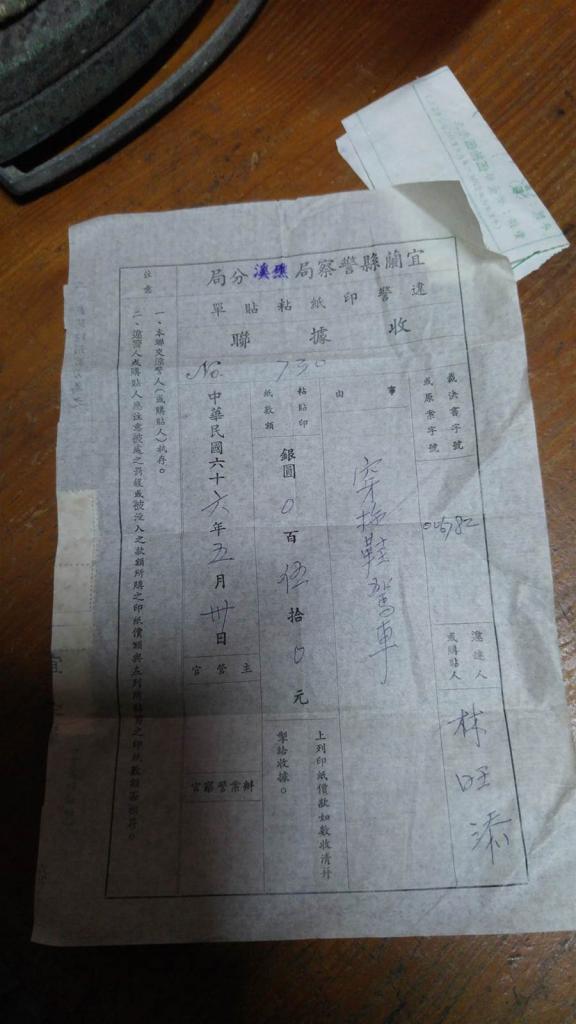 宜蘭縣警察局礁溪分局
違警印紙黏貼單
收據聯
裁決書字號
或原案字號
00782
違警人
或購貼人
林旺添
事由
穿拖鞋駕車
粘貼印
紙數額
銀圓0百伍拾0元
上列印紙價款如數收清幷
掣給收據。
No. 730
中華民國六十六年五月卅日
主管官
辦案警察官
注意
一、本聯交違警人(或購貼人)執存。
二、違警人或購貼人應注意被處之罰鍰或被沒入之款額所購之印紙價額與左列所黏貼之印紙數額